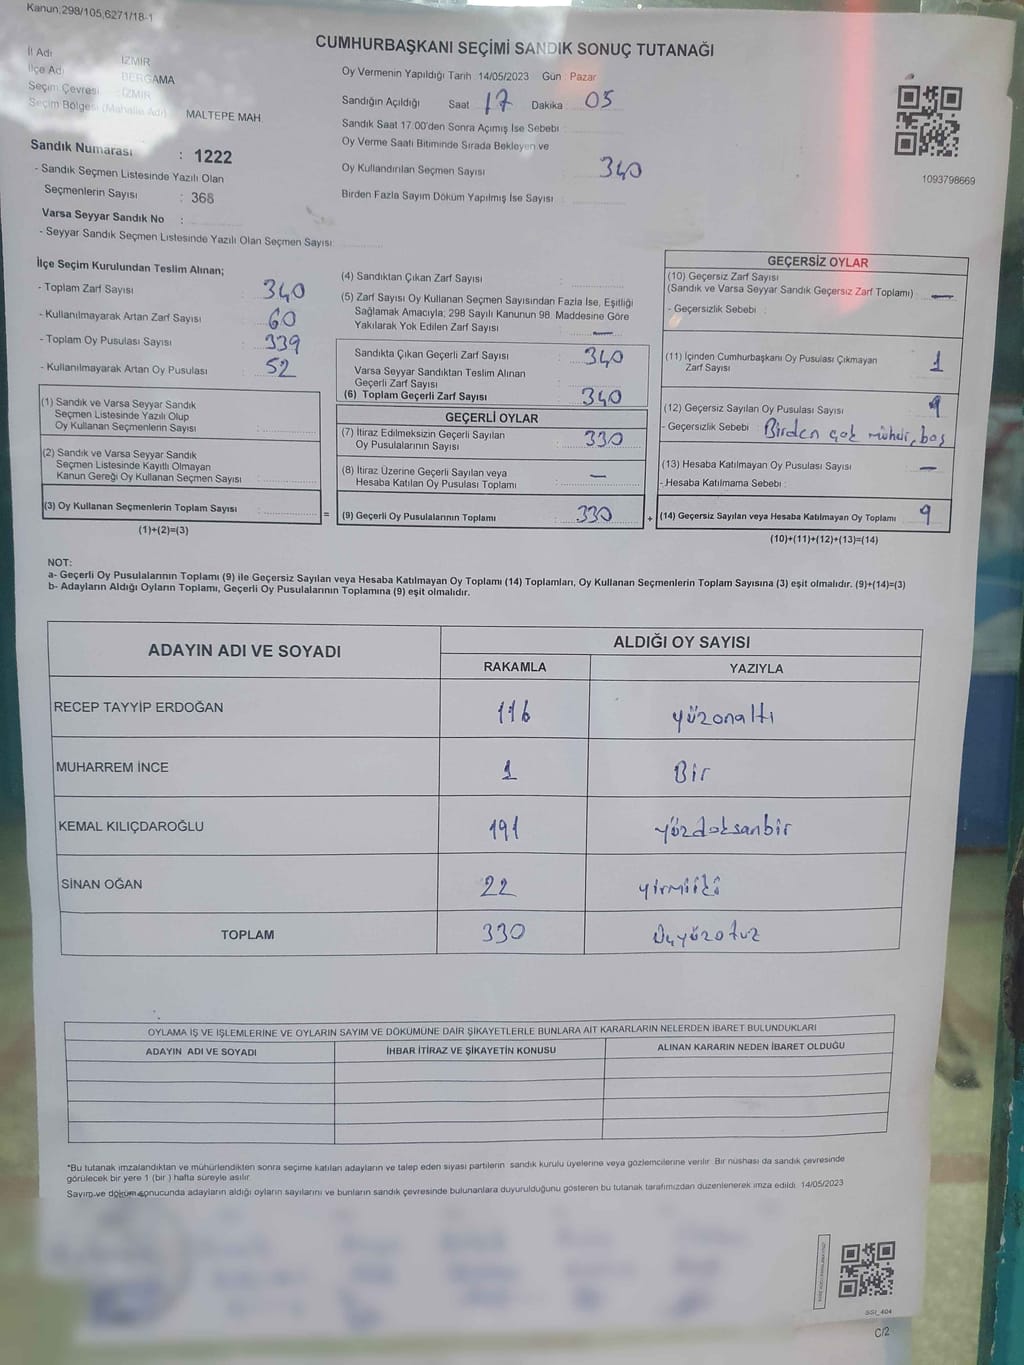 Kanun;298/105,6271/18-1
CUMHURBAŞKANI SEÇİMİ SANDIK SONUÇ TUTANAĞI
İl Adı : İZMİR
İlçe Adı : BERGAMA
Seçim Çevresi : İZMİR
Seçim Bölgesi (Mahalle Adı) : MALTEPE MAH.
Sandık Numarası : 1222
- Sandık Seçmen Listesinde Yazılı Olan
Seçmenlerin Sayısı : 368
Varsa Seyyar Sandık No :
- Seyyar Sandık Seçmen Listesinde Yazılı Olan Seçmen Sayısı:
Oy Vermenin Yapıldığı Tarih 14/05/2023 Gün Pazar
Sandığın Açıldığı Saat 17 Dakika 05
Sandık Saat 17:00'den Sonra Açımış İse Sebebi :
Oy Verme Saati Bitiminde Sırada Bekleyen ve
Oy Kullandırılan Seçmen Sayısı : 340
Birden Fazla Sayım Döküm Yapılmış İse Sayısı :
1093798669
İlçe Seçim Kurulundan Teslim Alınan;
- Toplam Zarf Sayısı : 340
- Kullanılmayarak Artan Zarf Sayısı : 60
- Toplam Oy Pusulası Sayısı : 339
- Kullanılmayarak Artan Oy Pusulası : 52
(1) Sandık ve Varsa Seyyar Sandık
Seçmen Listesinde Yazılı Olup
Oy Kullanan Seçmenlerin Sayısı :
(2) Sandık ve Varsa Seyyar Sandık
Seçmen Listesinde Kayıtlı Olmayan
Kanun Gereği Oy Kullanan Seçmen Sayısı :
(3) Oy Kullanan Seçmenlerin Toplam Sayısı :
(1)+(2)=(3)
(4) Sandıktan Çıkan Zarf Sayısı :
(5) Zarf Sayısı Oy Kullanan Seçmen Sayısından Fazla İse, Eşitliği
Sağlamak Amacıyla; 298 Sayılı Kanunun 98. Maddesine Göre
Yakılarak Yok Edilen Zarf Sayısı : —
Sandıkta Çıkan Geçerli Zarf Sayısı : 340
Varsa Seyyar Sandıktan Teslim Alınan
Geçerli Zarf Sayısı :
(6) Toplam Geçerli Zarf Sayısı : 340
GEÇERLİ OYLAR
(7) İtiraz Edilmeksizin Geçerli Sayılan
Oy Pusulalarının Sayısı : 330
(8) İtiraz Üzerine Geçerli Sayılan veya
Hesaba Katılan Oy Pusulası Toplamı : —
= (9) Geçerli Oy Pusulalarının Toplamı : 330 +
GEÇERSİZ OYLAR
(10) Geçersiz Zarf Sayısı
(Sandık ve Varsa Seyyar Sandık Geçersiz Zarf Toplamı) : —
- Geçersizlik Sebebi :
(11) İçinden Cumhurbaşkanı Oy Pusulası Çıkmayan
Zarf Sayısı : 1
(12) Geçersiz Sayılan Oy Pusulası Sayısı : 9
- Geçersizlik Sebebi : Birden çok mühür, boş
(13) Hesaba Katılmayan Oy Pusulası Sayısı : —
- Hesaba Katılmama Sebebi :
(14) Geçersiz Sayılan veya Hesaba Katılmayan Oy Toplamı : 9
(10)+(11)+(12)+(13)=(14)
NOT:
a- Geçerli Oy Pusulalarının Toplamı (9) ile Geçersiz Sayılan veya Hesaba Katılmayan Oy Toplamı (14) Toplamları, Oy Kullanan Seçmenlerin Toplam Sayısına (3) eşit olmalıdır. (9)+(14)=(3)
b- Adayların Aldığı Oyların Toplamı, Geçerli Oy Pusulalarının Toplamına (9) eşit olmalıdır.
ADAYIN ADI VE SOYADI ALDIĞI OY SAYISI
RAKAMLA YAZIYLA
RECEP TAYYİP ERDOĞAN 116 yüzonaltı
MUHARREM İNCE 1 Bir
KEMAL KILIÇDAROĞLU 191 yüzdoksanbir
SİNAN OĞAN 22 yirmiiki
TOPLAM 330 üçyüzotuz
OYLAMA İŞ VE İŞLEMLERİNE VE OYLARIN SAYIM VE DÖKÜMÜNE DAİR ŞİKAYETLERLE BUNLARA AİT KARARLARIN NELERDEN İBARET BULUNDUKLARI
ADAYIN ADI VE SOYADI İHBAR İTİRAZ VE ŞİKAYETİN KONUSU ALINAN KARARIN NEDEN İBARET OLDUĞU
*Bu tutanak imzalandıktan ve mühürlendikten sonra seçime katılan adayların ve talep eden siyasi partilerin sandık kurulu üyelerine veya gözlemcilerine verilir. Bir nüshası da sandık çevresinde
görülecek bir yere 1 (bir ) hafta süreyle asılır.
Sayım ve döküm sonucunda adayların aldığı oyların sayılarını ve bunların sandık çevresinde bulunanlara duyurulduğunu gösteren bu tutanak tarafımızdan düzenlenerek imza edildi. 14/05/2023
SSI_404
C/2